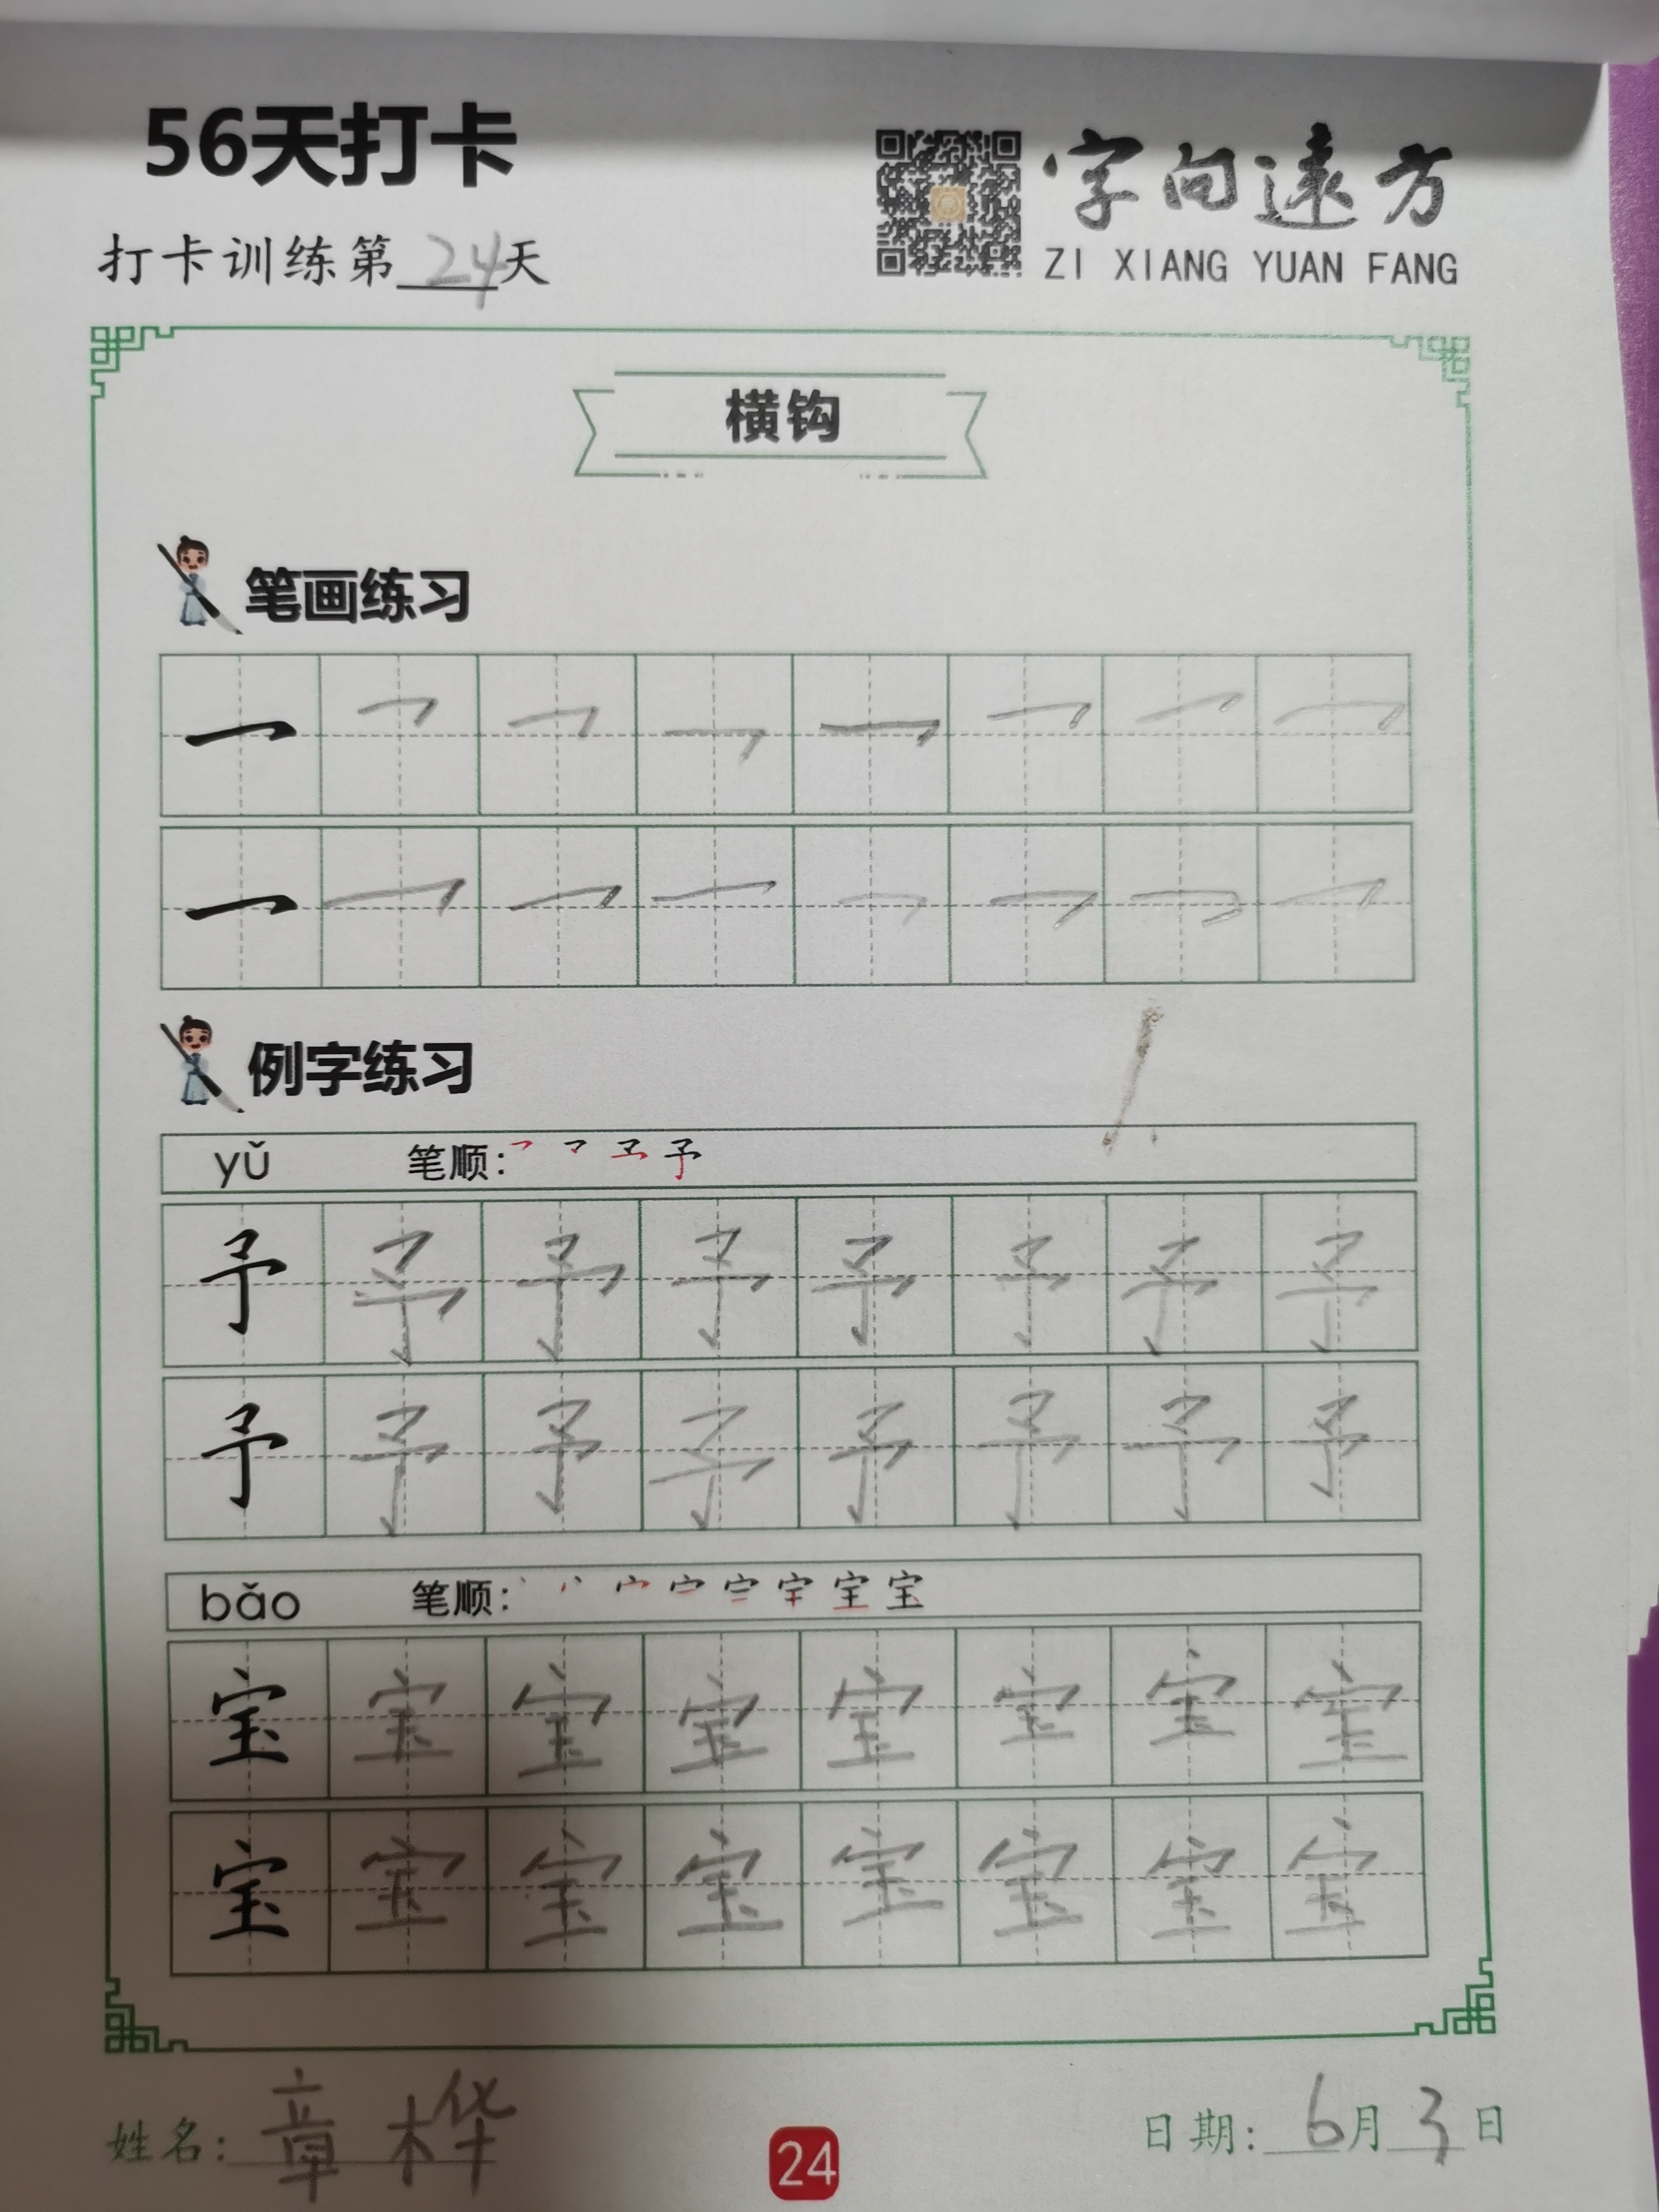 56天打卡
字向远方
打卡训练第24天
ZI XIANG YUAN FANG
横钩
笔画练习
例字练习
yǔ 笔顺：
予 予 予 予 予 予 予 予
予 予 予 予 予 予 予 予
bǎo 笔顺：
宝 宝 宝 宝 宝 宝 宝 宝
宝 宝 宝 宝 宝 宝 宝 宝
姓名：章桦 日期：6月3日
24